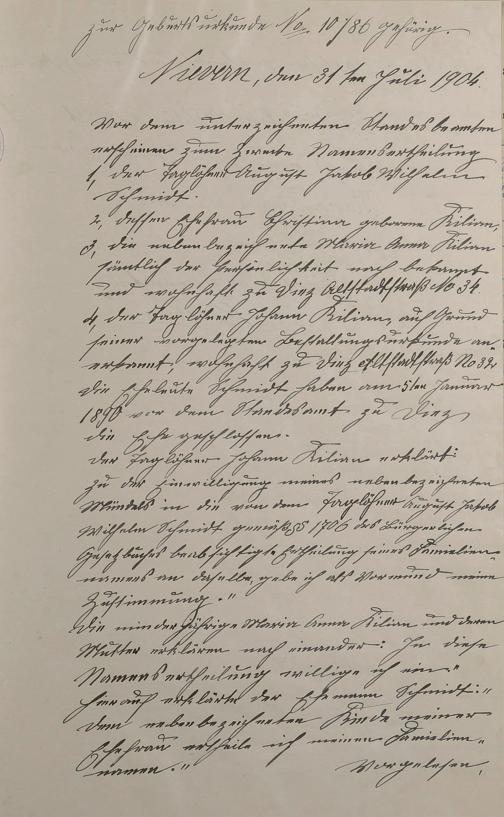 zur Geburtsurkunde No. 10/86 gehörig.
Nievern, den 31ten Juli 1904.
Vor dem unterzeichneten Standesbeamten
erscheinen zum Zwecke Namensertheilung
1, der Taglöhner August Jakob Wilhelm
Schmidt.
2, dessen Ehefrau Christina geborene Kilian,
3, die nebenbezeichnete Maria Anna Kilian
sämtlich der Persönlichkeit nach bekannt
und wohnhaft zu Diez Altstadtstraß No 34.
4, der Taglöhner Johann Kilian, auf Grund
seiner vorgelegten Bestallungsurkunde an-
erkannt, wohnhaft zu Diez Altstadtstraß No 32.
Die Eheleute Schmidt haben am 5ten Januar
1890 vor dem Standesamt zu Diez
die Ehe geschlossen.
Der Taglöhner Johann Kilian erklärt:
Zu der Einwilligung meines nebenbezeichneten
Mündels in die von dem Taglöhner August Jakob
Wilhelm Schmidt gemäß § 1706 des Bürgerlichen
Gesetzbuches beabsichtigte Ertheilung seines Familien-
namens an dasselbe, gebe ich als Vormund meine
Zustimmung."
Die minderjährige Maria Anna Kilian und deren
Mutter erklären nach einander: In diese
Namensertheilung willige ich ein."
Hierauf erklärte der Ehemann Schmidt:"
Dem nebenbezeichneten Kinde meiner
Ehefrau ertheile ich meinen Familien-
namen."
Vorgelesen,